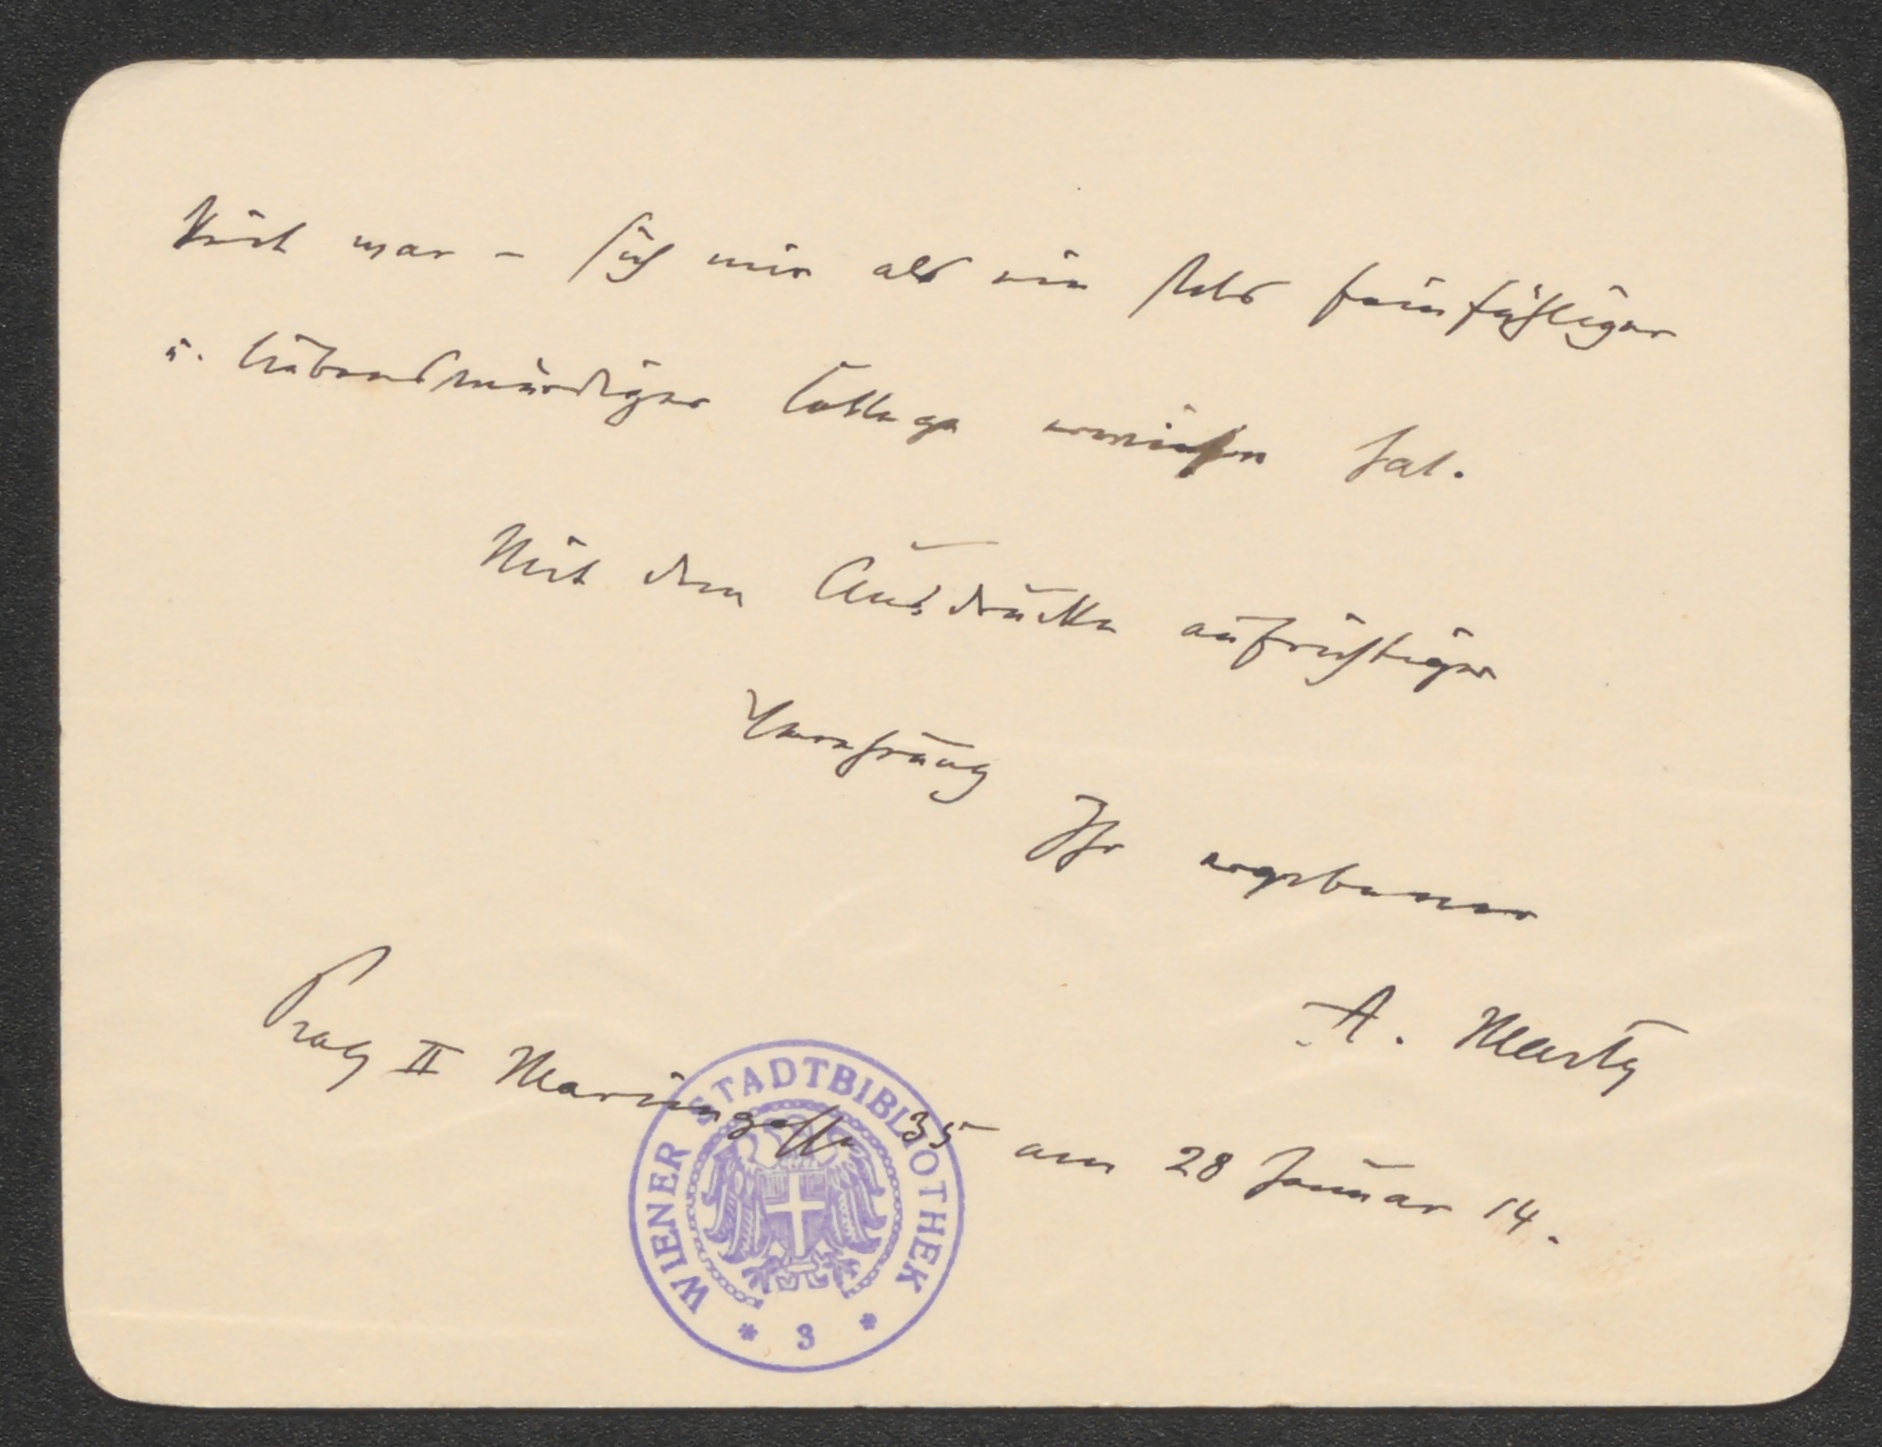 war – sich mir als ein stets feinfühliger
u. liebenswürdiger College erwiesen hat.
Mit dem Ausdrucke aufrichtiger
Verehrung
Ihr ergebener
A. Marty
Prag II Mariengasse 35 am 28 Januar 14.
WIENER STADTBIBLIOTHEK
* 3 *